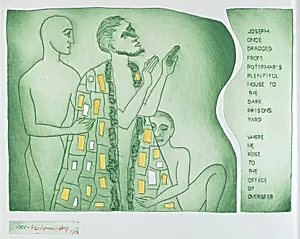 JOSEPH
ONCE
DRAGGED
FROM
POTIPHAR'S
PLENTIFUL
HOUSE TO
THE
DARK
PRISONS
YARD
WHERE
HE
ROSE
TO
THE
OFFICE
OF
OVERSEER
-XV-